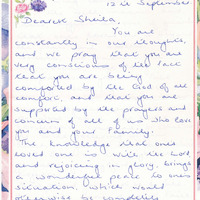 12th September
Dearest Sheila,
You are
constantly in our thoughts,
and we pray that you are
very conscious of the fact
that you are being
comforted by the God of all
comfort, and that you are
supported by the prayers and
concern of all of us who love
you and your family.
The knowledge that ones
loved one is with the Lord
and rejoicing in glory, brings
a wonderful peace to ones
situation, which would
otherwise be completely